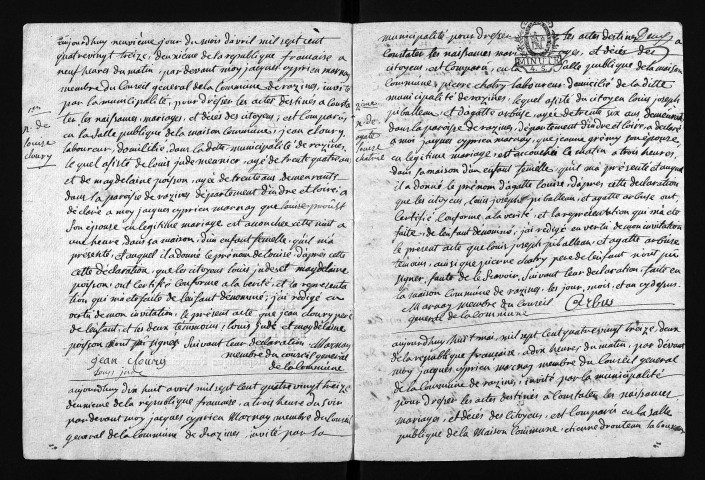 aujourdhuy neuvième jour du mois d'avril mil sept cent
quatrevingt treize, deuxième de la republique francaise a
neuf heures du matin, pardevant moy jacques cyprien marnay
membre du Conseil general de la Commune de razines, invité
par la municipalité, pour dresser les actes destinés a consta-
ter les naissances, mariages, et décès des citoyens, est comparu,
en la salle publique de la maison Commune, jean cloury,
laboureur, domicilié, dans la ditte municipalité de razines,
lequel assisté de louis jude meunier, agé de trente quatre ans
et de magdelaine poisson, agée de trente ans demeurants
dans la paroisse de razines département d'indre et loire, a
déclaré a moy jacques cyprien marnay que louise proust
son épouse en legitime mariage est accouchée cette nuit a
une heure dans sa maison, d'un enfant femelle, qu'il m'a
presenté, et auquel il a donné le prénom de louise, d'après cette
cette déclaration, que les citoyens louis jude et magdelaine
poisson, ont certifié conforme a la verité, et la représenta-
tion qui m'a été faite de l'enfant dénommé, j'ai rédigé en
vertu de mon invitation, le présent acte que jean cloury père
de l'enfant, et les deux témoins, louis jude et magdelaine
poisson n'ont pas signés suivant leur declaration Marnay
jean cloury membre du conseil general
louis jude de la Commune
1er
N. de
louise
cloury
aujourdhuy dix huit avril mil sept cent quatrevingt treize
deuxième de la république française, a trois heures du soir
pardevant moy jacques cyprien Marnay membre du Conseil
general de la Commune de Razines, invité par la
MINUTE
municipalité pour dresser les actes destinés a
Constater les naissances mariages, et décès des
citoyens, est Comparu, en la salle publique de la maison
Commune, pierre chatry laboureur domicilié de la ditte
municipalité de razines, lequel assisté du citoyen louis joseph
pibalteau, et d'agatte arbuse, agée de trente six ans demeurant
dans la paroisse de razines, département d'indre et loire, a declaré
a moi jacques cyprien marnay, que jeanne gremy son épouse,
en légitime mariage, est accouchée ce matin a trois heures,
dans sa maison d'un enfant femelle, qu'il m'a présenté et auquel
il a donné le prénom d'agatte louise, d'après cette declaration
que les citoyens, louis joseph pibalteau, et agatte arbuse ont
Certifié Conforme a la verité, et la representation qui m'a été
faite, de l'enfant dénommé, j'ai rédigé en vertu de mon invitation
le present acte que louis joseph pibalteau, et agatte arbuse
témoins, ainsi que pierre chatry père de l'enfant n'ont pu
signer, faute de le scavoir, suivant leur déclaration, faite en
la maison Commune de razines, les jour, mois, et an cy dessus.
Marnay membre du Conseil
general de la Commune Arbus
2ème
N. de
agatte
louise
chatrie
aujourdhuy huit mai, mil sept cent quatrevingt treize, deux
de la république française, a dix heures, du matin, par devant
moy jacques cyprien marnay membre du Conseil general
de la Commune de razines, invité par la municipalité
pour dresser les actes destinés a Constater, les naissances
mariages, et décès des citoyens, est Comparu en la salle
publique de la Maison Commune, etienne drouteau laboureur